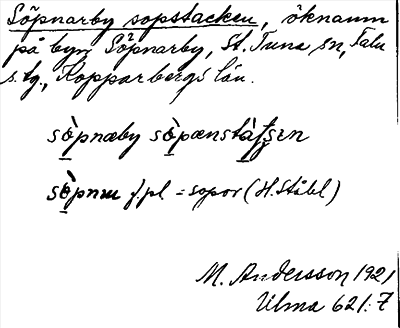 Söpnarby sopstacken, öknamn
på byn Söpnarby, St. Tuna sn, Falu
s. tg., Kopparbergs län.
sö̀pnæby sö̀pænstàʃsɛn
sö̀pnɯ f. pl = sopor (H. Ståbl)
M. Andersson 1921
Ulma 621:7